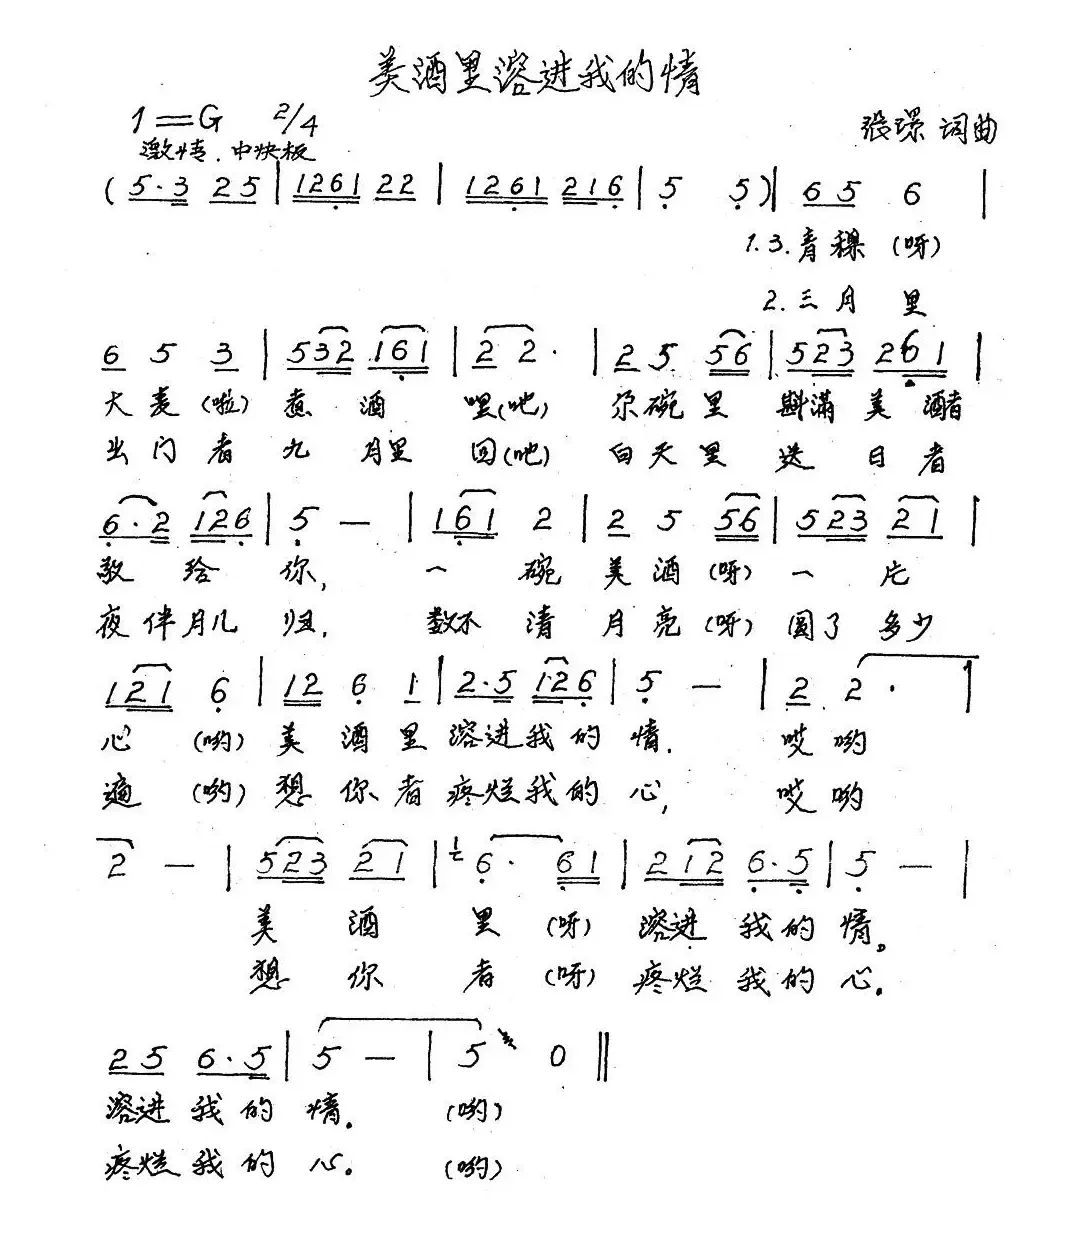 美酒里溶进我的情
1=G 2/4
张璟 词曲
激情.中快板
(5·3 25|1261 22|1261 216|5 5)|65 6|
1.3.青稞(呀)
2.三月里
6 5 3|532 161|2 2·|25 56|523 261|
大麦(啦)煮酒嘿(吔)尕碗里斟满美酒者
出门者九月里回(吔)白天里送日者
6·2 126|5 —|161 2|2 5 56|523 21|
敬给你,一碗美酒(呀)一片
夜伴月儿归,数不清月亮(呀)圆了多少
121 6|12 6 1|2·5 126|5 —|2 2·|
心(哟)美酒里溶进我的情.哎哟
遍(哟)想你者疼烂我的心,哎哟
2 —|523 21|6· 61|212 6·5|5 —|
美酒里(呀)溶进我的情。
想你者(呀)疼烂我的心.
25 6·5|5 —|5 0‖
溶进我的情.(哟)
疼烂我的心.(哟)